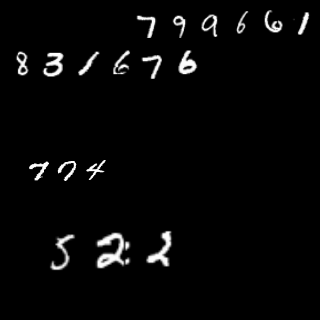 799661
831676
774
522